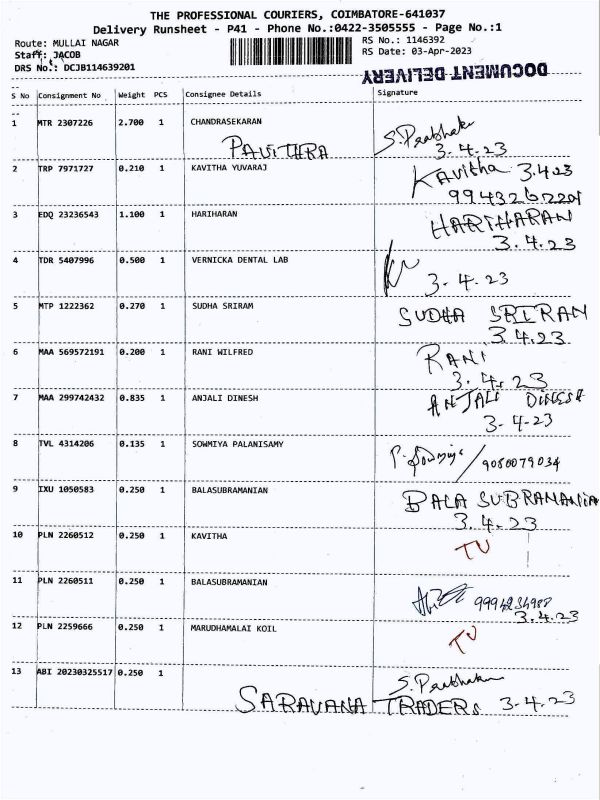 THE PROFESSIONAL COURIERS, COIMBATORE-641037
Delivery Runsheet - P41 - Phone No.:0422-3505555 - Page No.:1
Route: MULLAI NAGAR
RS No.: 1146392
Staff: JACOB
RS Date: 03-Apr-2023
DRS No.: DCJB114639201
DOCUMENT DELIVERY
S No Consignment No Weight PCS Consignee Details Signature
1 MTR 2307226 2.700 1 CHANDRASEKARAN S. Prabhakar
PAVITHRA 3.4.23
2 TRP 7971727 0.210 1 KAVITHA YUVARAJ Kavitha 3.4.23
3 EDQ 23236543 1.100 1 HARIHARAN HARIHARAN
3.4.23
4 TDR 5407996 0.500 1 VERNICKA DENTAL LAB
3.4.23
5 MTP 1222362 0.270 1 SUDHA SRIRAM SUDHA SRIRAM
3.4.23
6 MAA 569572191 0.200 1 RANI WILFRED RANI
3.4.23
7 MAA 299742432 0.835 1 ANJALI DINESH ANJALI DINESH
3-4-23
8 TVL 4314206 0.135 1 SOWMIYA PALANISAMY P. Sowmiya / 9080079034
9 IXU 1050583 0.250 1 BALASUBRAMANIAN BALA SUBRAMANIA
3.4.23
10 PLN 2260512 0.250 1 KAVITHA TU
11 PLN 2260511 0.250 1 BALASUBRAMANIAN
3.4.23
12 PLN 2259666 0.250 1 MARUDHAMALAI KOIL TU
13 ABI 20230325517 0.250 1 S. Prabhakar
SARAVANA TRADERS 3-4-23